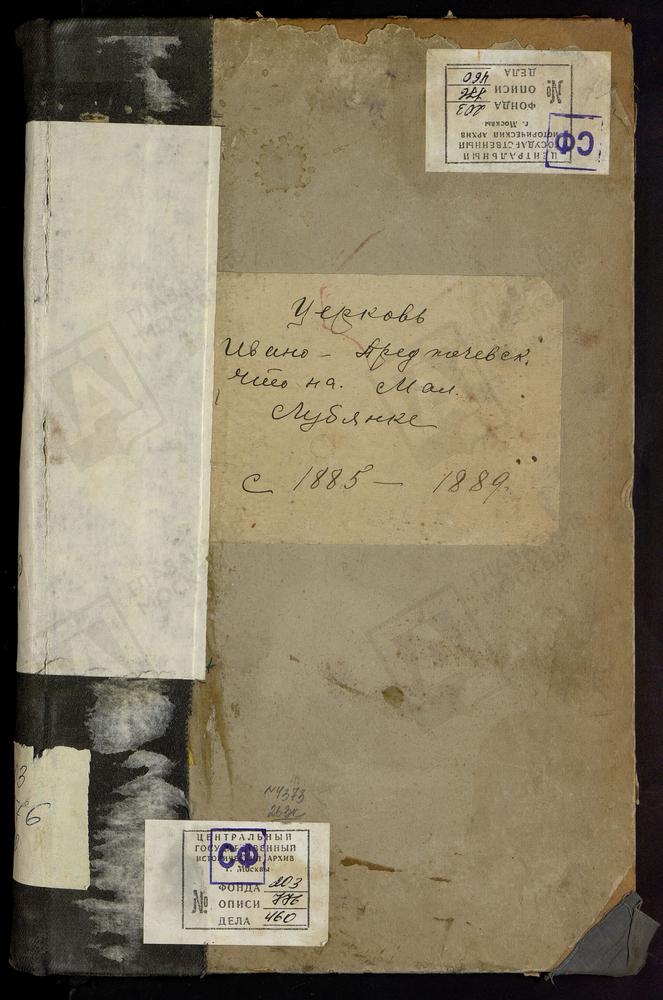 ЦЕНТРАЛЬНЫЙ
ГОСУДАРСТВЕННЫЙ
ИСТОРИЧЕСКИЙ АРХИВ
г. Москвы
СФ
№
ФОНДА 203
ОПИСИ 776
ДЕЛА 460
Церковь
Ивано - Предтечевск.
что на. Мал.
Лубянке
с 1885 - 1889.
N4373
263
3
6
ЦЕНТРАЛЬНЫЙ
ГОСУДАРСТВЕННЫЙ
ИСТОРИЧЕСКИЙ АРХИВ
г. Москвы
СФ
№
ФОНДА 203
ОПИСИ 776
ДЕЛА 460